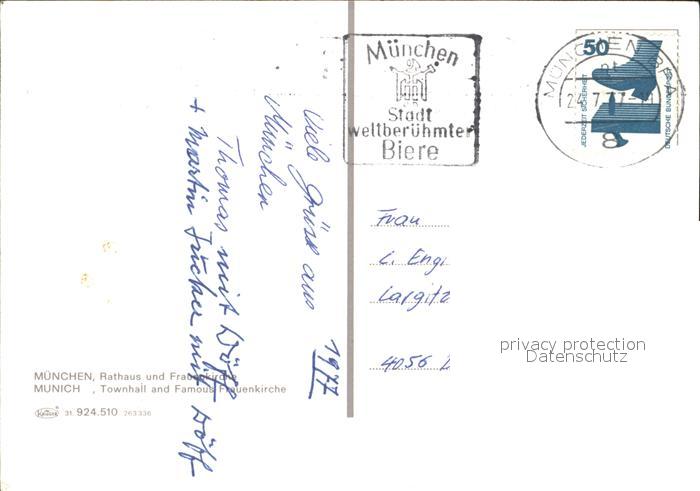 München
Stadt
weltberühmter
Biere
MÜNCHEN
50
JEDERZEIT SICHERHEIT
DEUTSCHE BUNDESPOST
Viele Grüsse aus
München 1977
Thomas mit
+ Martin mit
Frau
L. Engi
Largitz
4056
privacy protection
Datenschutz
MÜNCHEN, Rathaus und Frauenkirche
MUNICH , Townhall and Famous Frauenkirche
Krüger 31. 924.510 263336